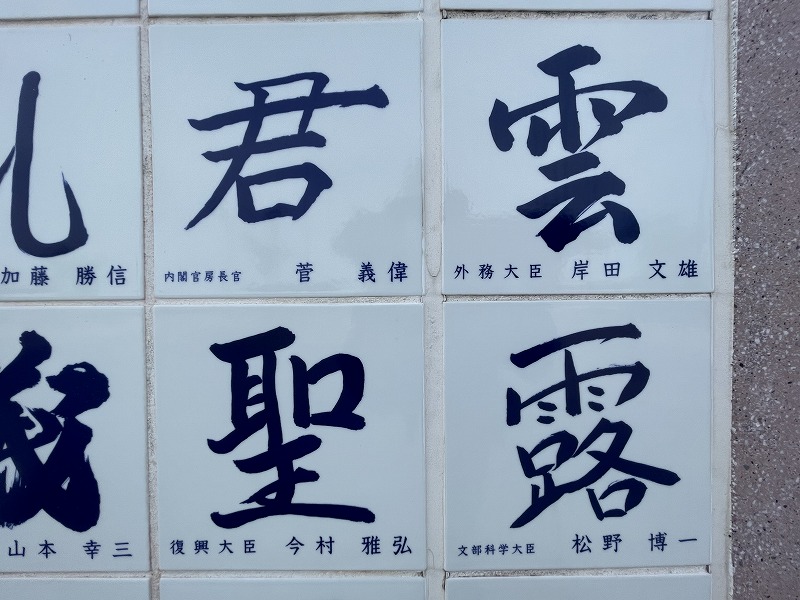 雲
外務大臣 岸田 文雄
君
内閣官房長官 菅 義偉
礼
加藤 勝信
露
文部科学大臣 松野 博一
聖
復興大臣 今村 雅弘
山本 幸三